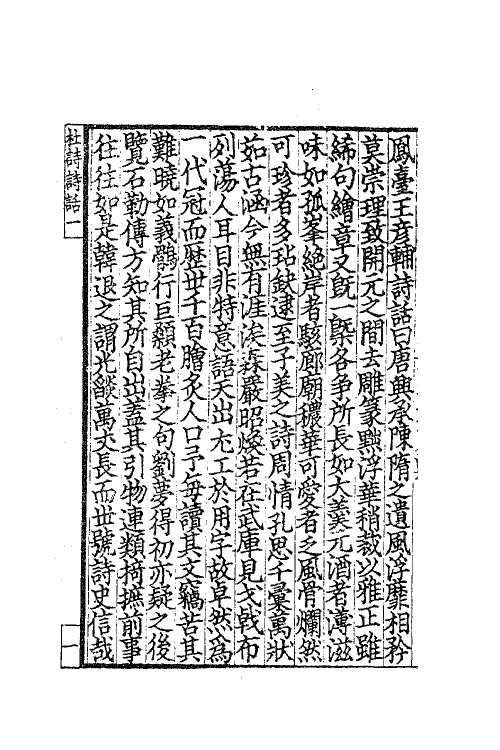 鳳臺王彦輔詩話曰唐興承陳隋之遺風浮靡相矜
莫崇理致開元之間去雕篆黜浮華稍裁以雅正雖
絺句繪章又既一槩各爭所長如大羹元酒者薄滋
味如孤峯絶岸者駭廊廟穠華可愛者乏風骨爛然
可珍者多玷缺逮至子美之詩周情孔思千彚萬狀
茹古涵今無有涯涘森嚴昭煥若在武庫見戈戟布
列蕩人耳目非特意語天出尤工於用字故卓然為
一代冠而歴世千百膾炙人口予每讀其文竊苦其
難曉如義鶻行巨顙老拳之句劉夢得初亦疑之後
覽石勒傳方知其所自出蓋其引物連類掎摭前事
往往如是韓退之謂光燄萬丈長而世號詩史信哉
杜詩詩話一
一